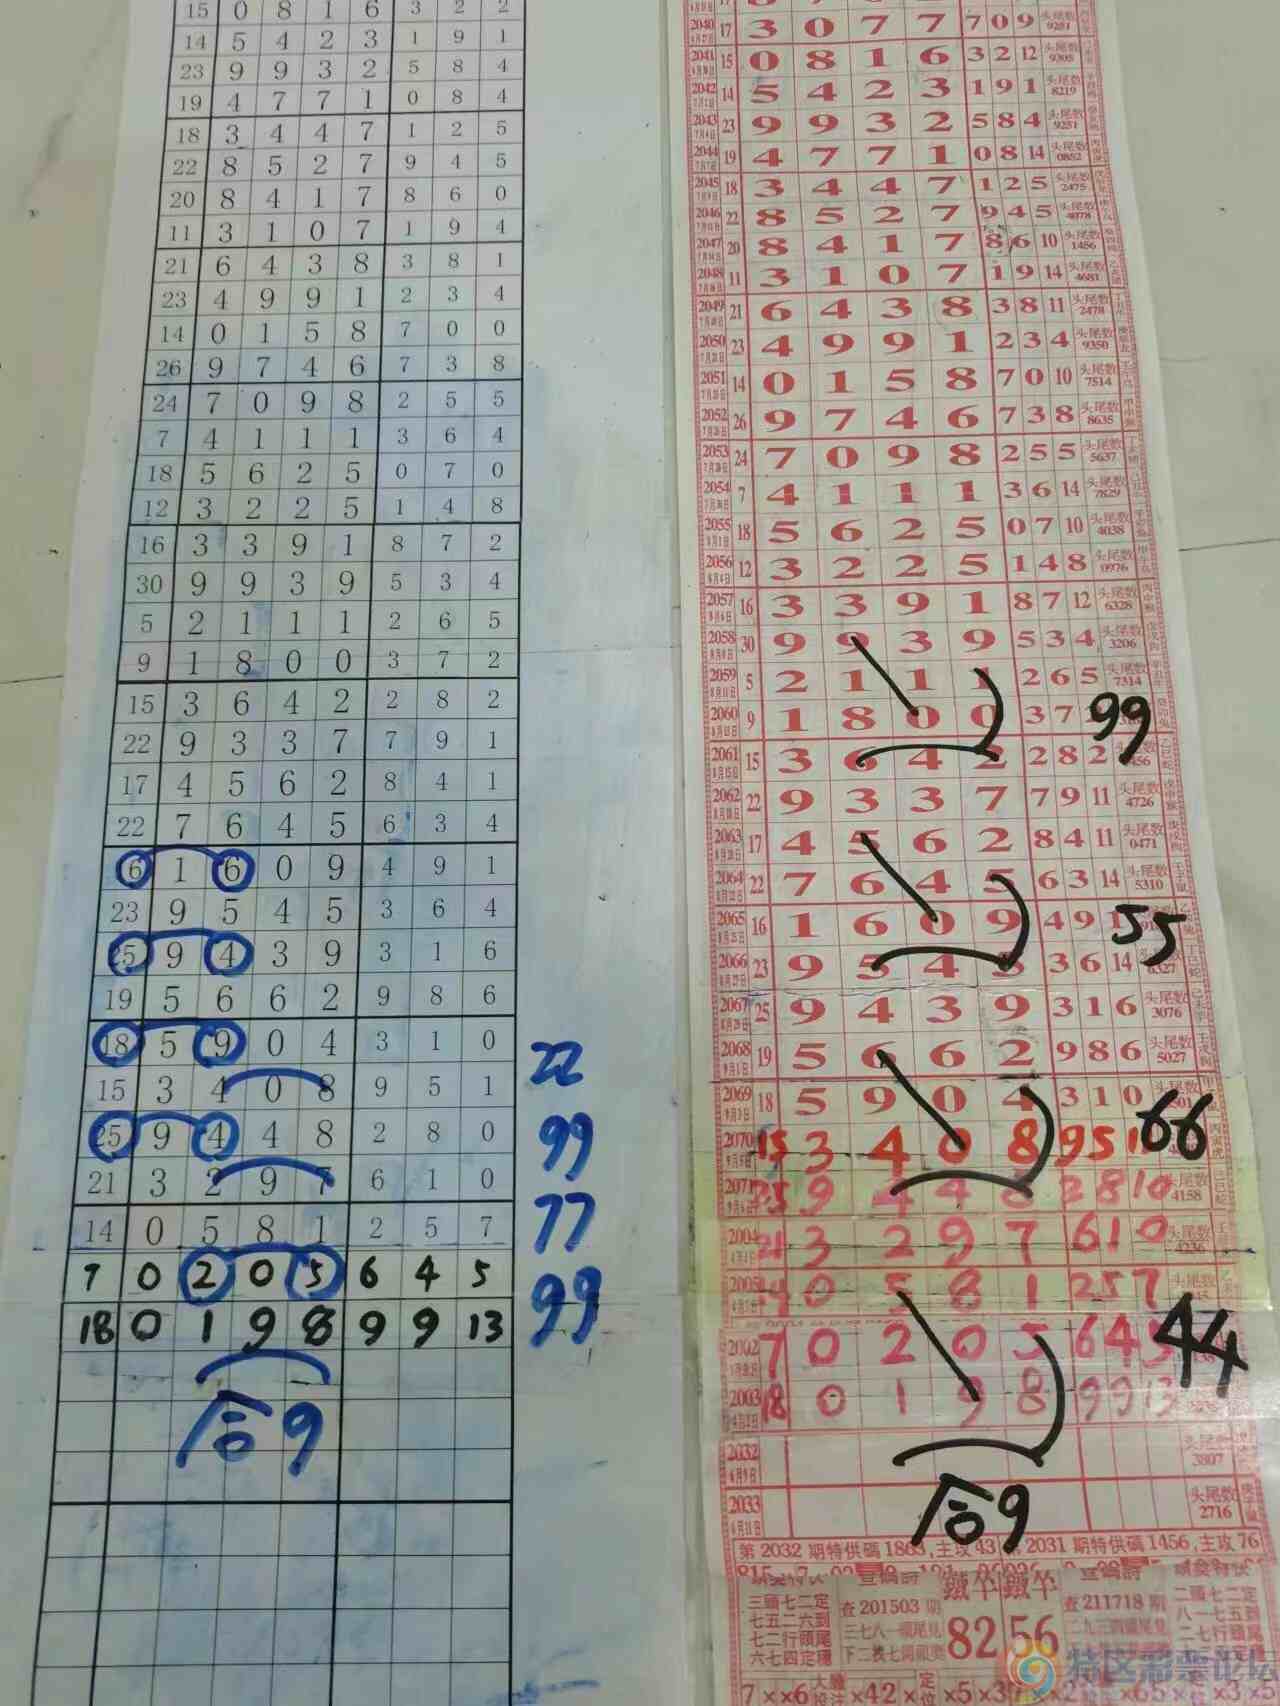 15 0 8 1 6 3 2 2
14 5 4 2 3 1 9 1
23 9 9 3 2 5 8 4
19 4 7 7 1 0 8 4
18 3 4 4 7 1 2 5
22 8 5 2 7 9 4 5
20 8 4 1 7 8 6 0
11 3 1 0 7 1 9 4
21 6 4 3 8 3 8 1
23 4 9 9 1 2 3 4
14 0 1 5 8 7 0 0
26 9 7 4 6 7 3 8
24 7 0 9 8 2 5 5
7 4 1 1 1 3 6 4
18 5 6 2 5 0 7 0
12 3 2 2 5 1 4 8
16 3 3 9 1 8 7 2
30 9 9 3 9 5 3 4
5 2 1 1 1 2 6 5
9 1 8 0 0 3 7 2
15 3 6 4 2 2 8 2
22 9 3 3 7 7 9 1
17 4 5 6 2 8 4 1
22 7 6 4 5 6 3 4
6 1 6 0 9 4 9 1
23 9 5 4 5 3 6 4
25 9 4 3 9 3 1 6
19 5 6 6 2 9 8 6
18 5 9 0 4 3 1 0
22
15 3 4 0 8 9 5 1
25 9 4 4 8 2 8 0
99
21 3 2 9 7 6 1 0
14 0 5 8 1 2 5 7
77
7 0 2 0 5 6 4 5
18 0 1 9 8 9 9 13
99
合9
2040 17 3 0 7 7 7 0 9 头尾数 9281
2041 15 0 8 1 6 3 2 12 头尾数 9305
2042 14 5 4 2 3 1 9 1 头尾数 8219
2043 23 9 9 3 2 5 8 4 头尾数 9251
2044 19 4 7 7 1 0 8 14 头尾数 0852
2045 18 3 4 4 7 1 2 5 头尾数 2475
2046 22 8 5 2 7 9 4 5 头尾数 4078
2047 20 8 4 1 7 8 6 10 头尾数 1456
2048 11 3 1 0 7 1 9 14 头尾数 4681
2049 21 6 4 3 8 3 8 11 头尾数 2478
2050 23 4 9 9 1 2 3 4 头尾数 9350
2051 14 0 1 5 8 7 0 10 头尾数 7514
2052 26 9 7 4 6 7 3 8 头尾数 8635
2053 24 7 0 9 8 2 5 5 头尾数 5637
2054 7 4 1 1 1 3 6 14 头尾数 7829
2055 18 5 6 2 5 0 7 10 头尾数 4038
2056 12 3 2 2 5 1 4 8 头尾数 0976
2057 16 3 3 9 1 8 7 12 头尾数 6328
2058 30 9 9 3 9 5 3 4 头尾数 3206
2059 5 2 1 1 1 2 6 5 头尾数 7314
2060 9 1 8 0 0 3 7
99
2061 15 3 6 4 2 2 8 2
2062 22 9 3 3 7 7 9 11 头尾数 4726
2063 17 4 5 6 2 8 4 11 头尾数 0471
2064 22 7 6 4 5 6 3 14 头尾数 5310
2065 16 1 6 0 9 4 9 1
55
2066 23 9 5 4 5 3 6 14
2067 25 9 4 3 9 3 1 6 头尾数 3076
2068 19 5 6 6 2 9 8 6 头尾数 5027
2069 18 5 9 0 4 3 1 0 头尾数
66
2070 15 3 4 0 8 9 5 1
2071 25 9 4 4 8 2 8 10 头尾数 4158
2004 21 3 2 9 7 6 1 0 头尾数 4236
2005 14 0 5 8 1 2 5 7
2002 7 0 2 0 5 6 4 5
44
2003 18 0 1 9 8 9 9 13
2032 头尾数 3807
2033 头尾数 2716
合9
第 2032 期特供碼 1863,主攻 43 第 2031 期特供碼 1456,主攻 76
三頭七二定 查 201503 期 82 56 查 211718 期 二頭七二定
七五二六到 八一七五到
七二行頭尾 二七行頭尾
六七四定穩
特区彩票论坛